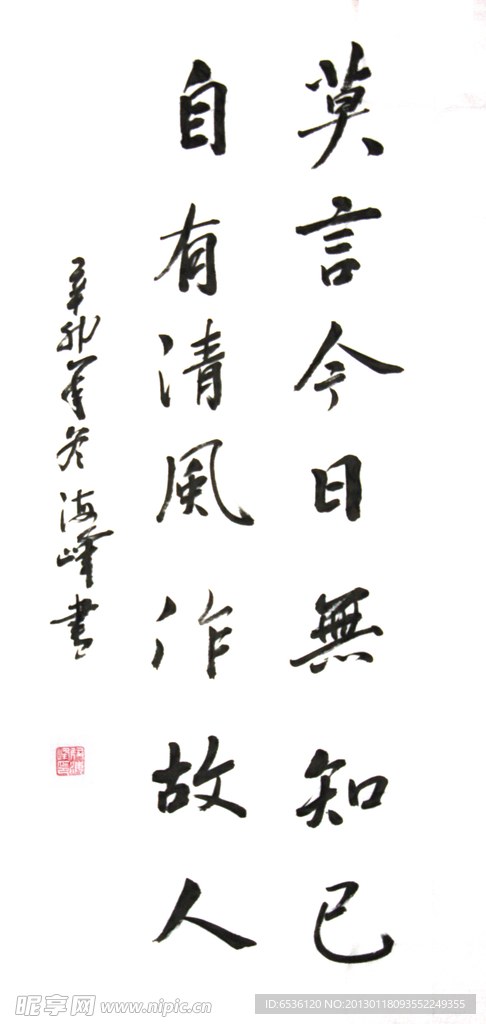 莫言今日無知己
自有清風作故人
辛卯年冬海峰書
昵享网 www.nipic.cn
ID:6536120 NO:20130118093552249355